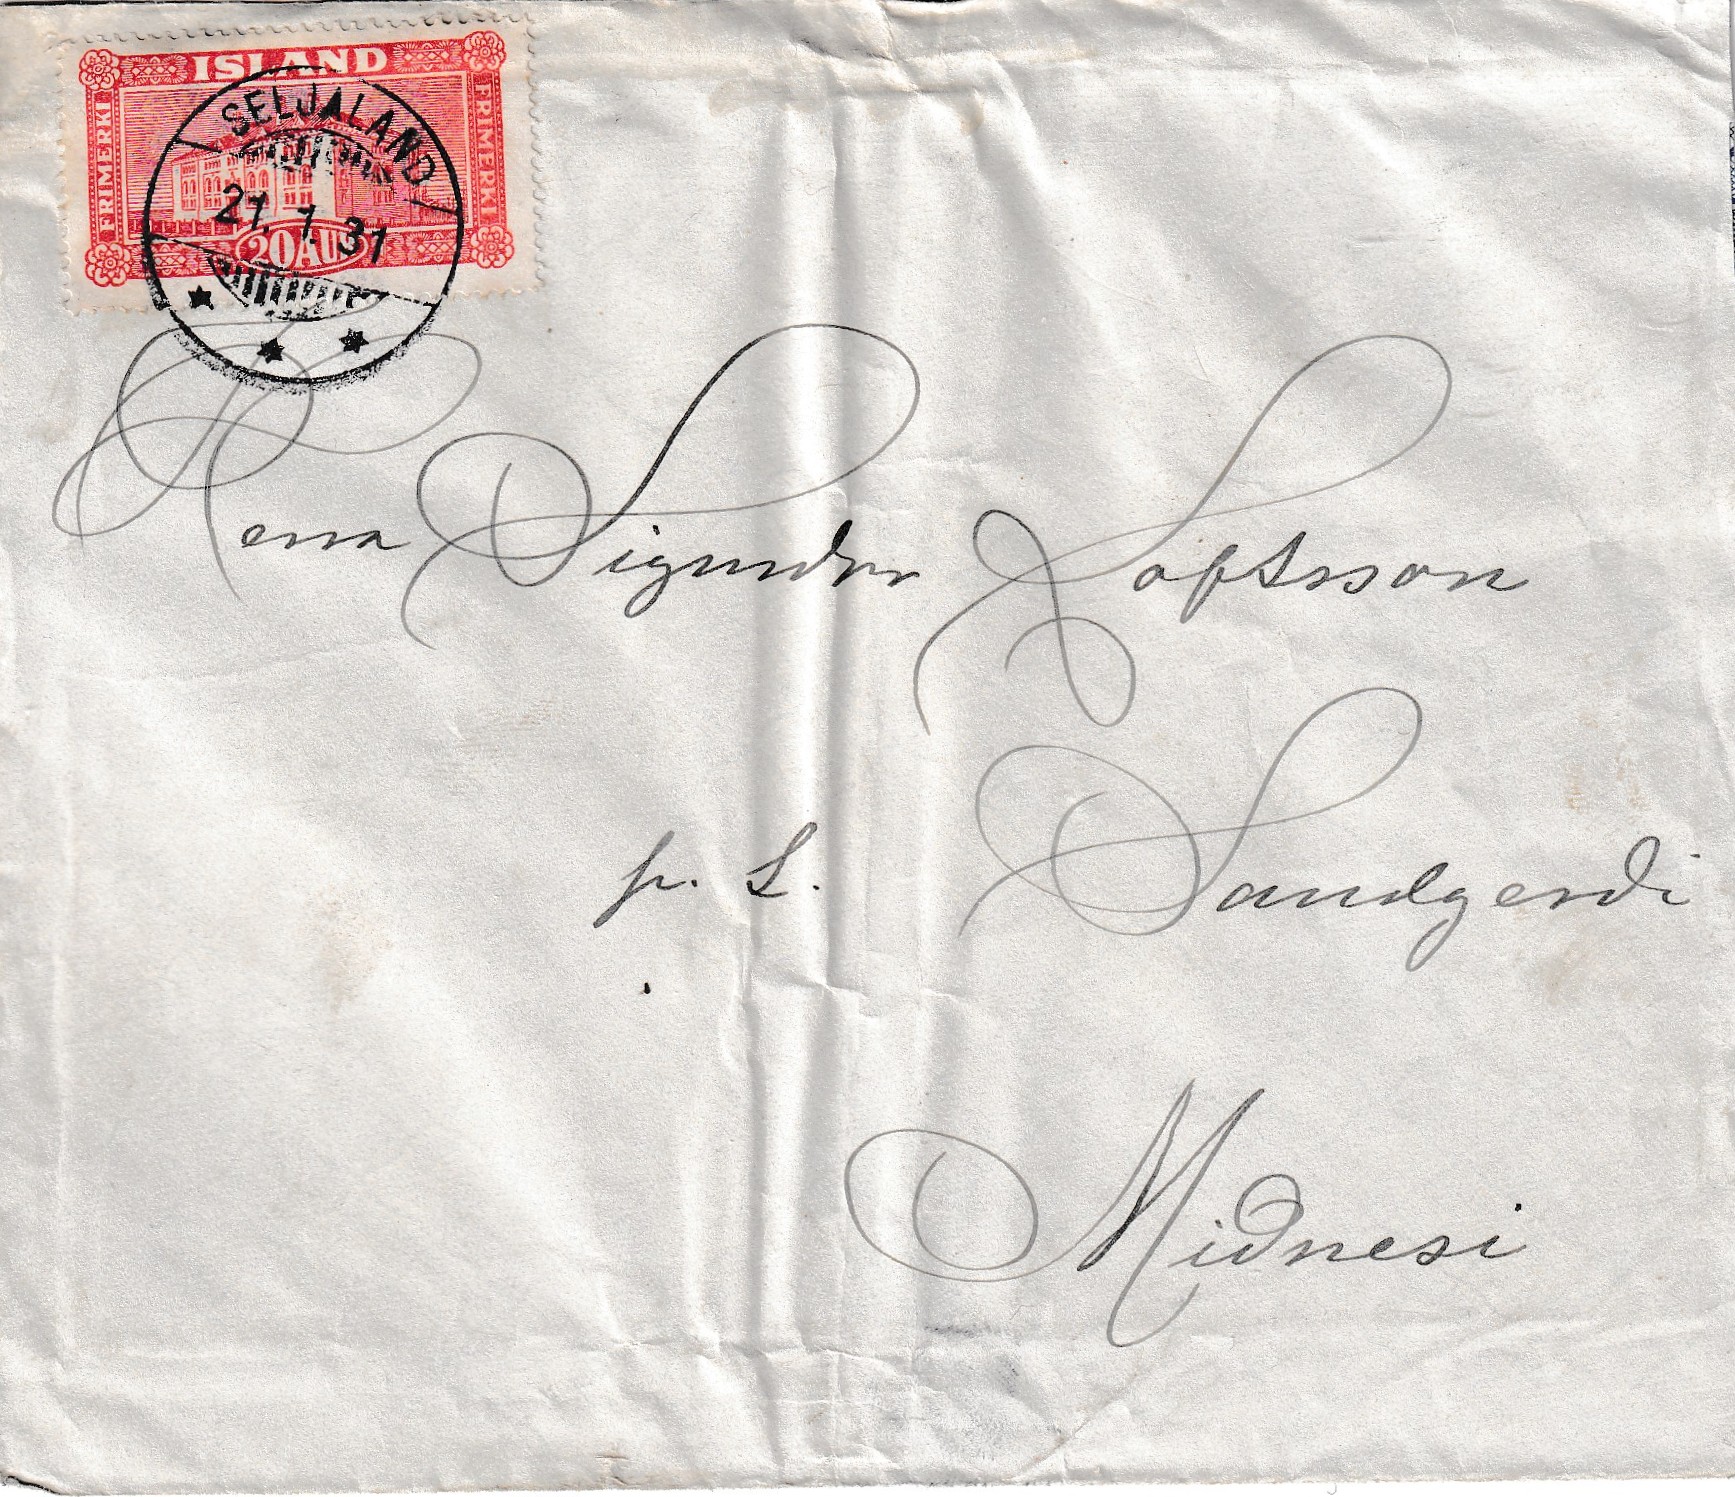 ISLAND
FRIMERKI
FRIMERKI
20 AUR
SELJALAND
21. 1. 31
Herra Sigurður Loftsson
p. t. Sandgerði
Miðnesi